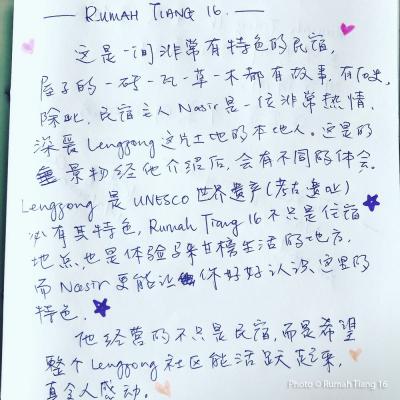 — RUMAH TIANG 16. —
这是一间非常有特色的民宿,
屋子的一砖一瓦一草一木都有故事,有历史,
除此,民宿主人 Nasir是一位非常热情,
深爱Lenggong这片土地的本地人。这里的
景物经他介绍后,会有不同的体会。
Lenggong 是 UNESCO 世界遗产(考古遗址)
必有其特色, Rumah Tiang 16 不只是住宿
地点,也是体验马来甘榜生活的地方,
而 Nasir 更能让你好好认识这里的
特色.
他经营的不只是民宿,而是希望
整个 Lenggong 社区能活跃起来,
真令人感动.
Photo © Rumah Tiang 16